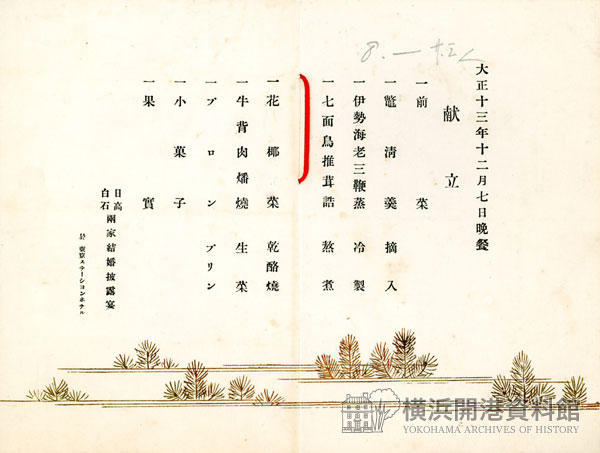 大正十三年十二月七日晩餐
献立
一前菜
一鼈清羮摘入
一伊勢海老三鞭蒸冷製
一七面鳥推茸詰熬煮
一花椰菜乾酪燒
一牛背肉燔燒生菜
一プロンプリン
一小菓子
一果實
日高
白石
兩家結婚披露宴
於東京ステーションホテル
横浜開港資料館
YOKOHAMA ARCHIVES OF HISTORY